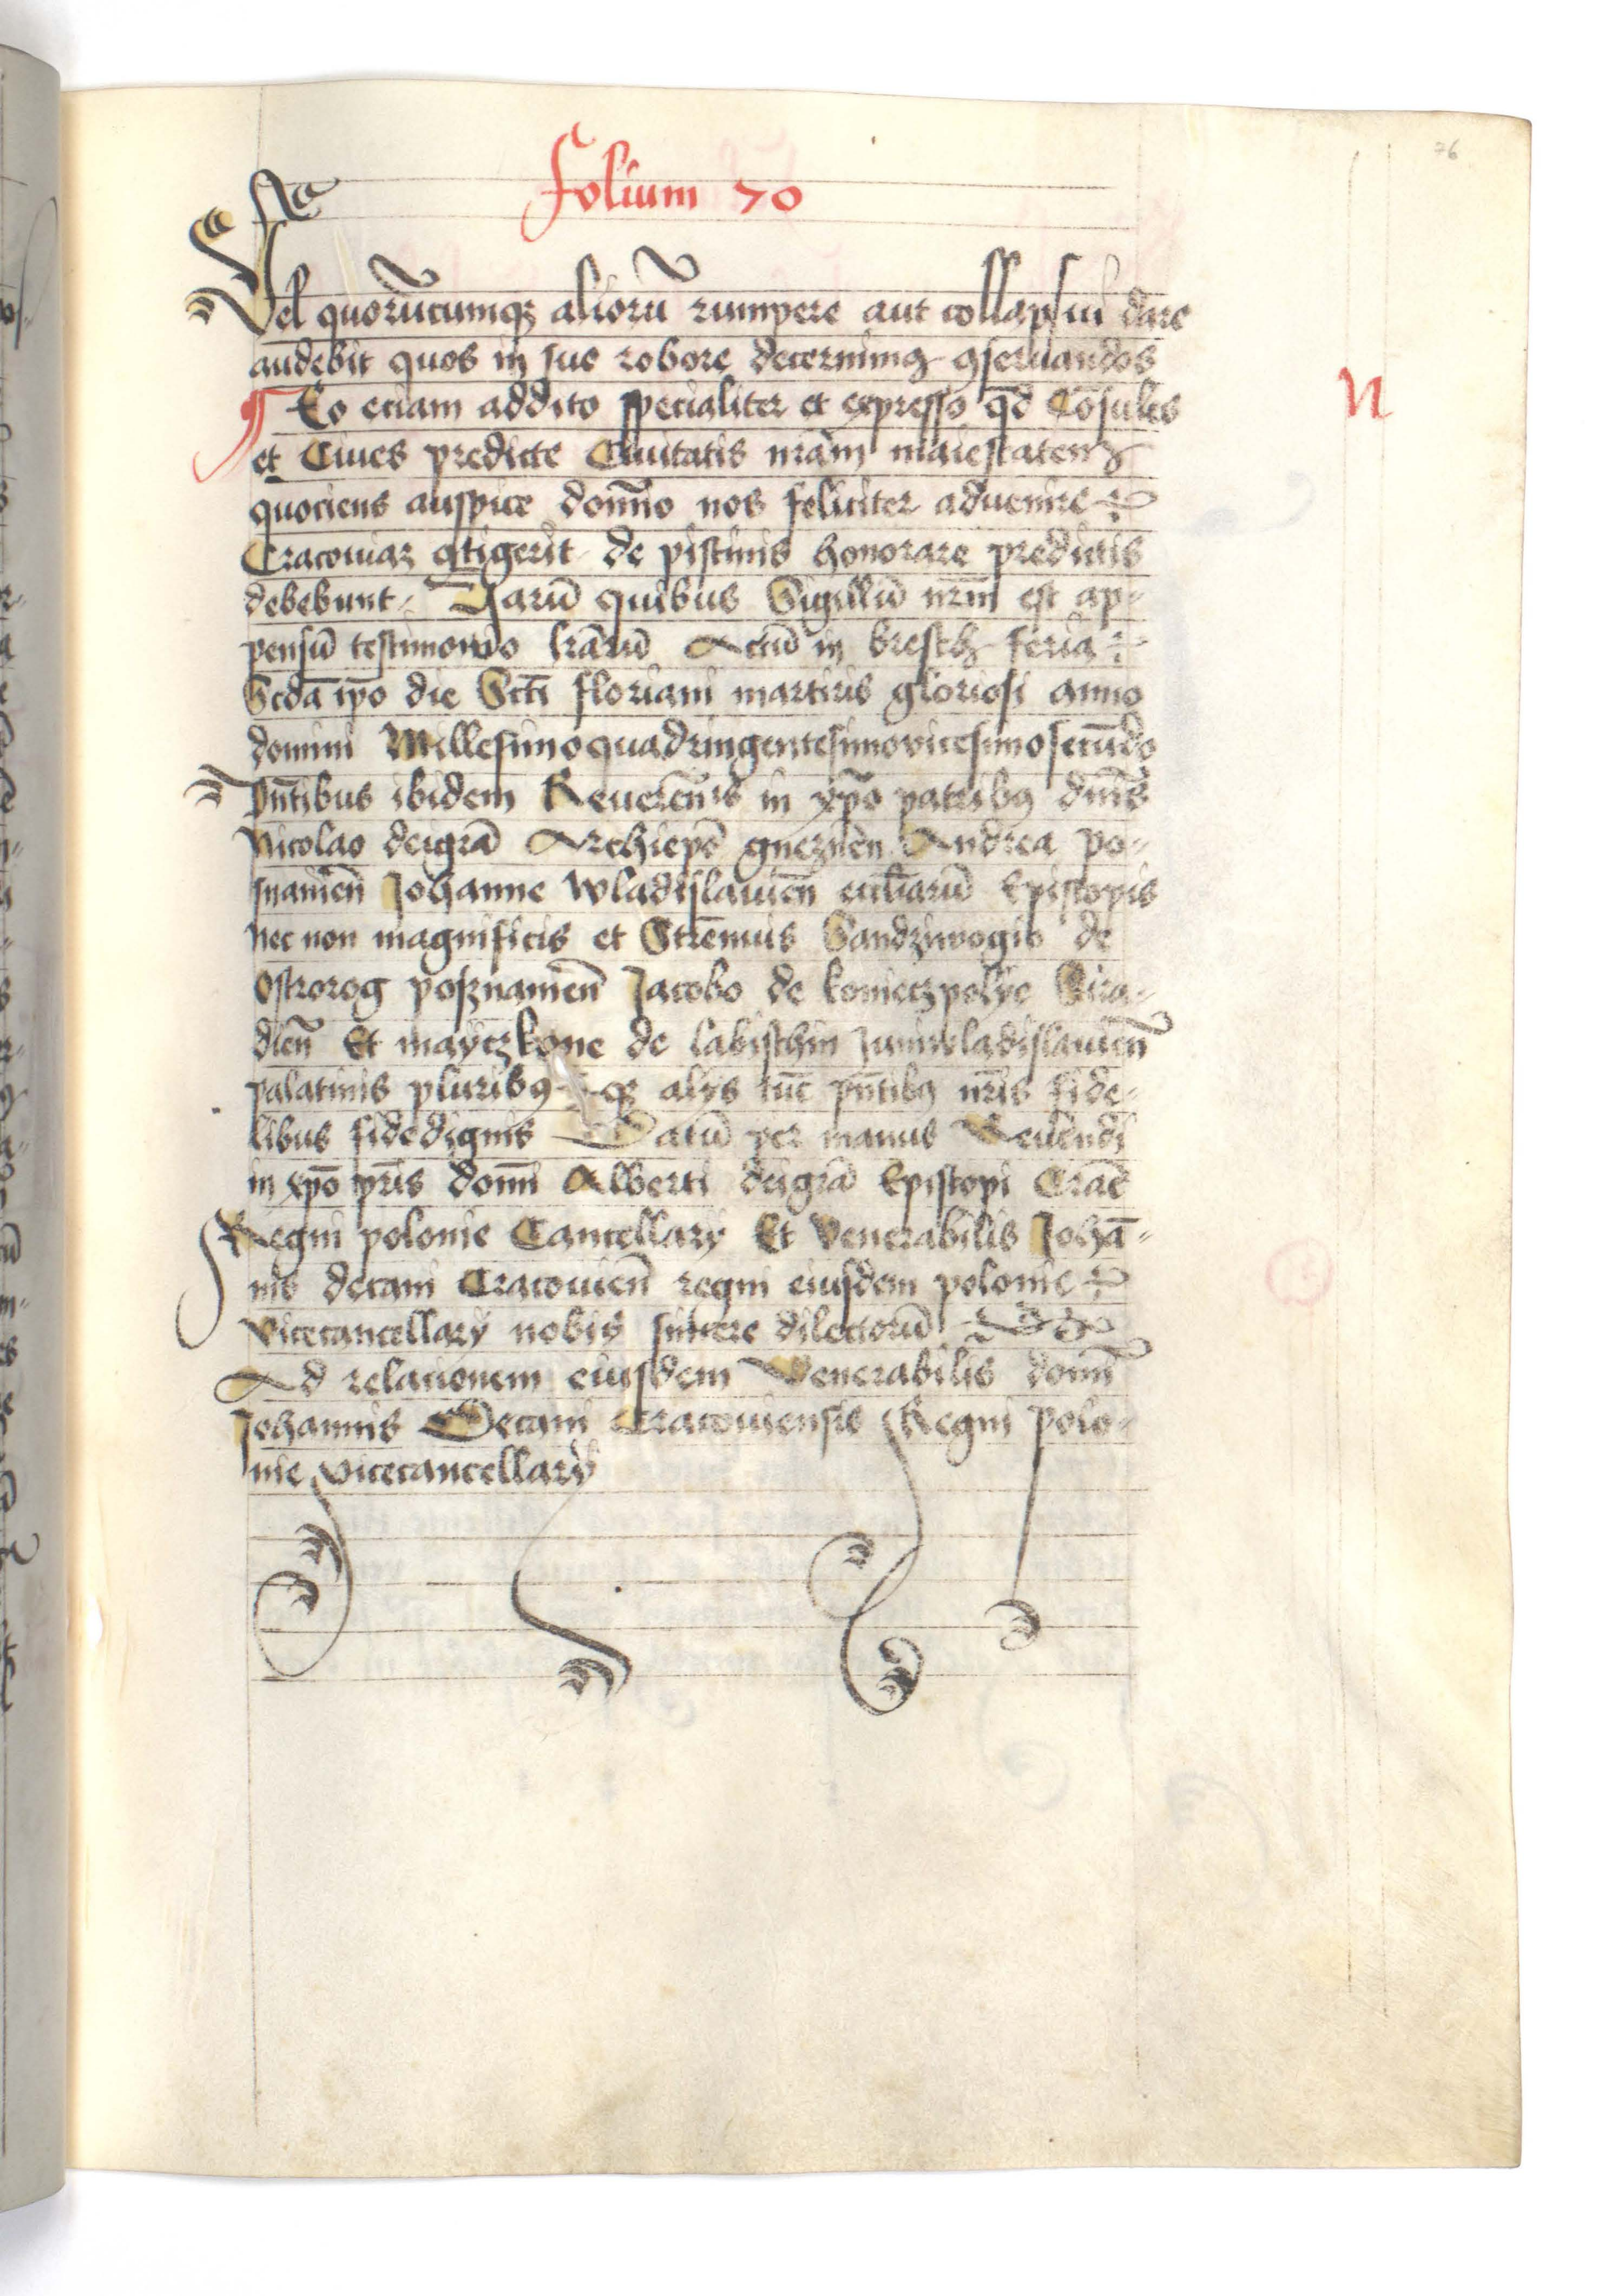 76
folium 70
Vel quorūcumqꝫ aliorū rumpere aut collapsui dare
audebit quos in suo robore decernimꝰ ꝯseruandos
¶ Eo eciam addito specialiter et expresso qd̄ Cōsules
et Ciues predicte Ciuitatis nrām maiestatem
quociens auspice domīno nos feliciter aduenire
Cracouiaꝫ ꝯtigerit de pistinis honorare predictis
debebunt Harū quibus Sigillū nrm̄ est ap-
pensū testimonio lrārū Actū in bresth feria
Scdā ipo die Scti floriani martiris gloriosi anno
domini Millesimoquadringentesimovicesimosecūdo
pn̄tibus ibidem Reuerēnis in xpō patribꝰ dnīs
Nicolao deigrā Archiepō gneznēn Andrea po-
snaniēn Johanne wladislauiēn eccliarū Episcopis
Nec non magnificis et Strēnuis Sandziwogio de
Ostrorog posznaniēn Jacobo de konieczpolye Sira-
diēn Et mayczkone de labischin Juniwladislauiēn
palatinis pluribꝰ qꝫ alys tūc pn̄tibꝰ nrīs fide-
libus fidedignis Datū per manus Reuēndi
in xpō prīs domī Alberti deigrā Episcopi Crāc
Regni polonie Cancellary Et venerabilis Johā-
nis decani Cracouiēn regni eiusdem polonie
Vicecancellary nobis sincere dilectorū
Ad relacionem eiusdem Venerabilis domī
Johannis Decani Cracouiensis Regni polo-
nie vicecancellary
N